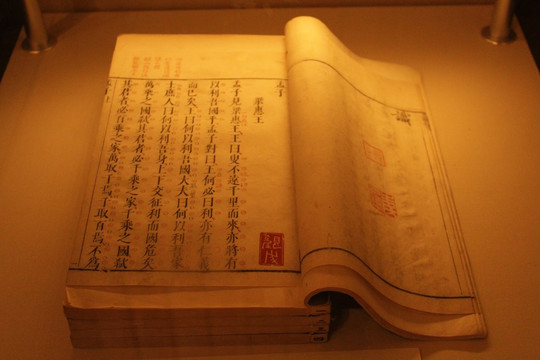 孟子
梁惠王
孟子見梁惠王王曰叟不遠千里而來亦將有
以利吾國乎孟子對曰王何必曰利亦有仁義
而已矣王曰何以利吾國大夫曰何以利吾家
士庶人曰何以利吾身上下交征利而國危矣
萬乘之國弒其君者必千乘之家千乘之國弒
其君者必百乘之家萬取千焉千取百焉不為